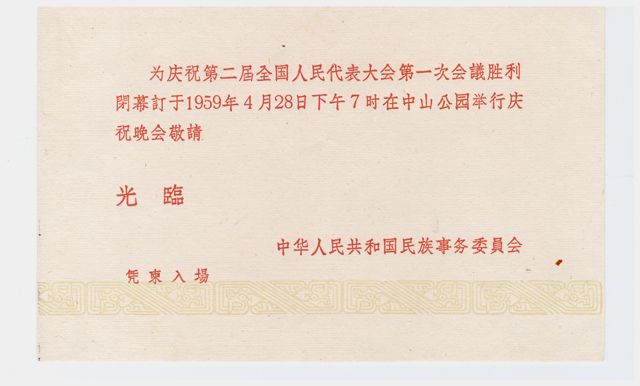 为庆祝第二届全国人民代表大会第一次会議胜利
閉幕訂于1959年4月28日下午7时在中山公园举行庆
祝晚会敬請
光臨
中华人民共和国民族事务委員会
凭柬入場